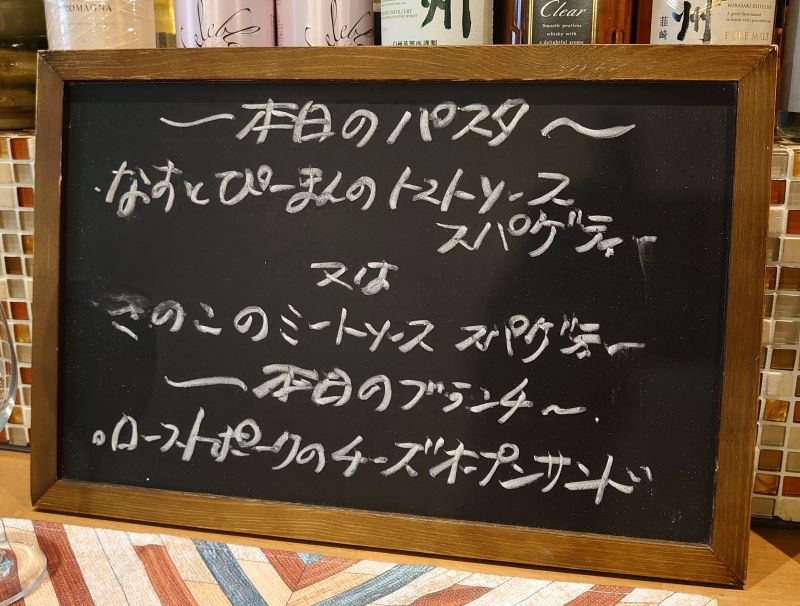 ROMAGNA
州
Clear
Smooth peatless
whisky with
a delightful aroma
州
韮崎
PURE MALT
〜本日のパスタ〜
・なすとぴーまんのトマトソース
スパゲティー
又は
きのこのミートソース スパゲティー
〜本日のブランチ〜
。ローストポークのチーズオープンサンド